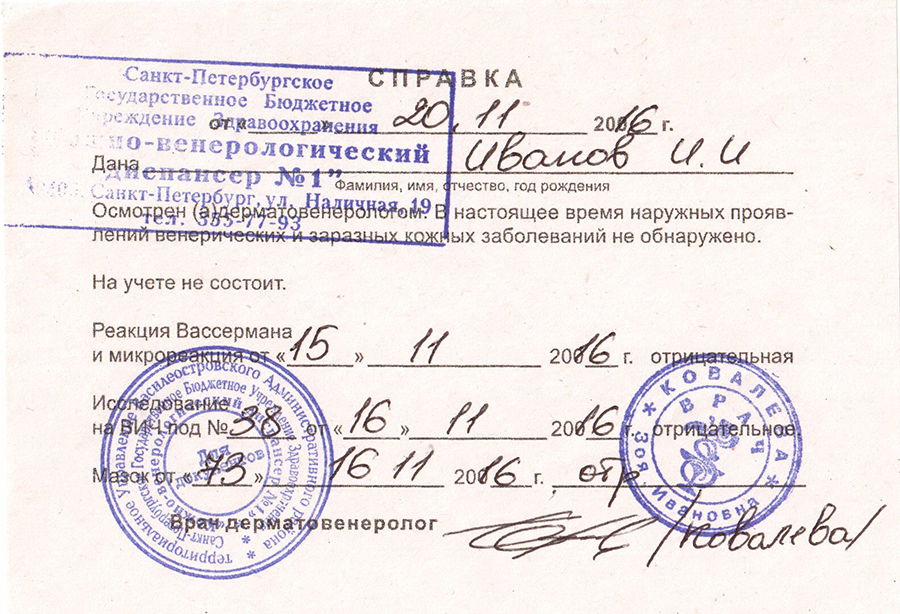 Санкт-Петербургское
Государственное Бюджетное
Учреждение Здравоохранения
но-венерологический
диспансер №1"
Санкт-Петербург, ул. Наличная, 19
тел. 355-77-93
СПРАВКА
от « » 20.11 20016 г.
Дана Иванов И.И
Фамилия, имя, отчество, год рождения
Осмотрен (а)дерматовенерологом. В настоящее время наружных прояв-
лений венерических и заразных кожных заболеваний не обнаружено.
На учете не состоит.
Реакция Вассермана
и микрореакция от «15» 11 20016 г. отрицательная
Исследование
на ВИЧ под № 38 от «16» 11 20016 г. отрицательное
Мазок от «73» 16 11 20016 г. отр
Врач дерматовенеролог /Ковалева/
территориальное Управление Василеостровского Административного района
Санкт-Петербургское Государственное Бюджетное Учреждение Здравоохранения
диспансер №1"
Для
документов
* КОВАЛЕВА *
Зоя Ивановна
ВРАЧ